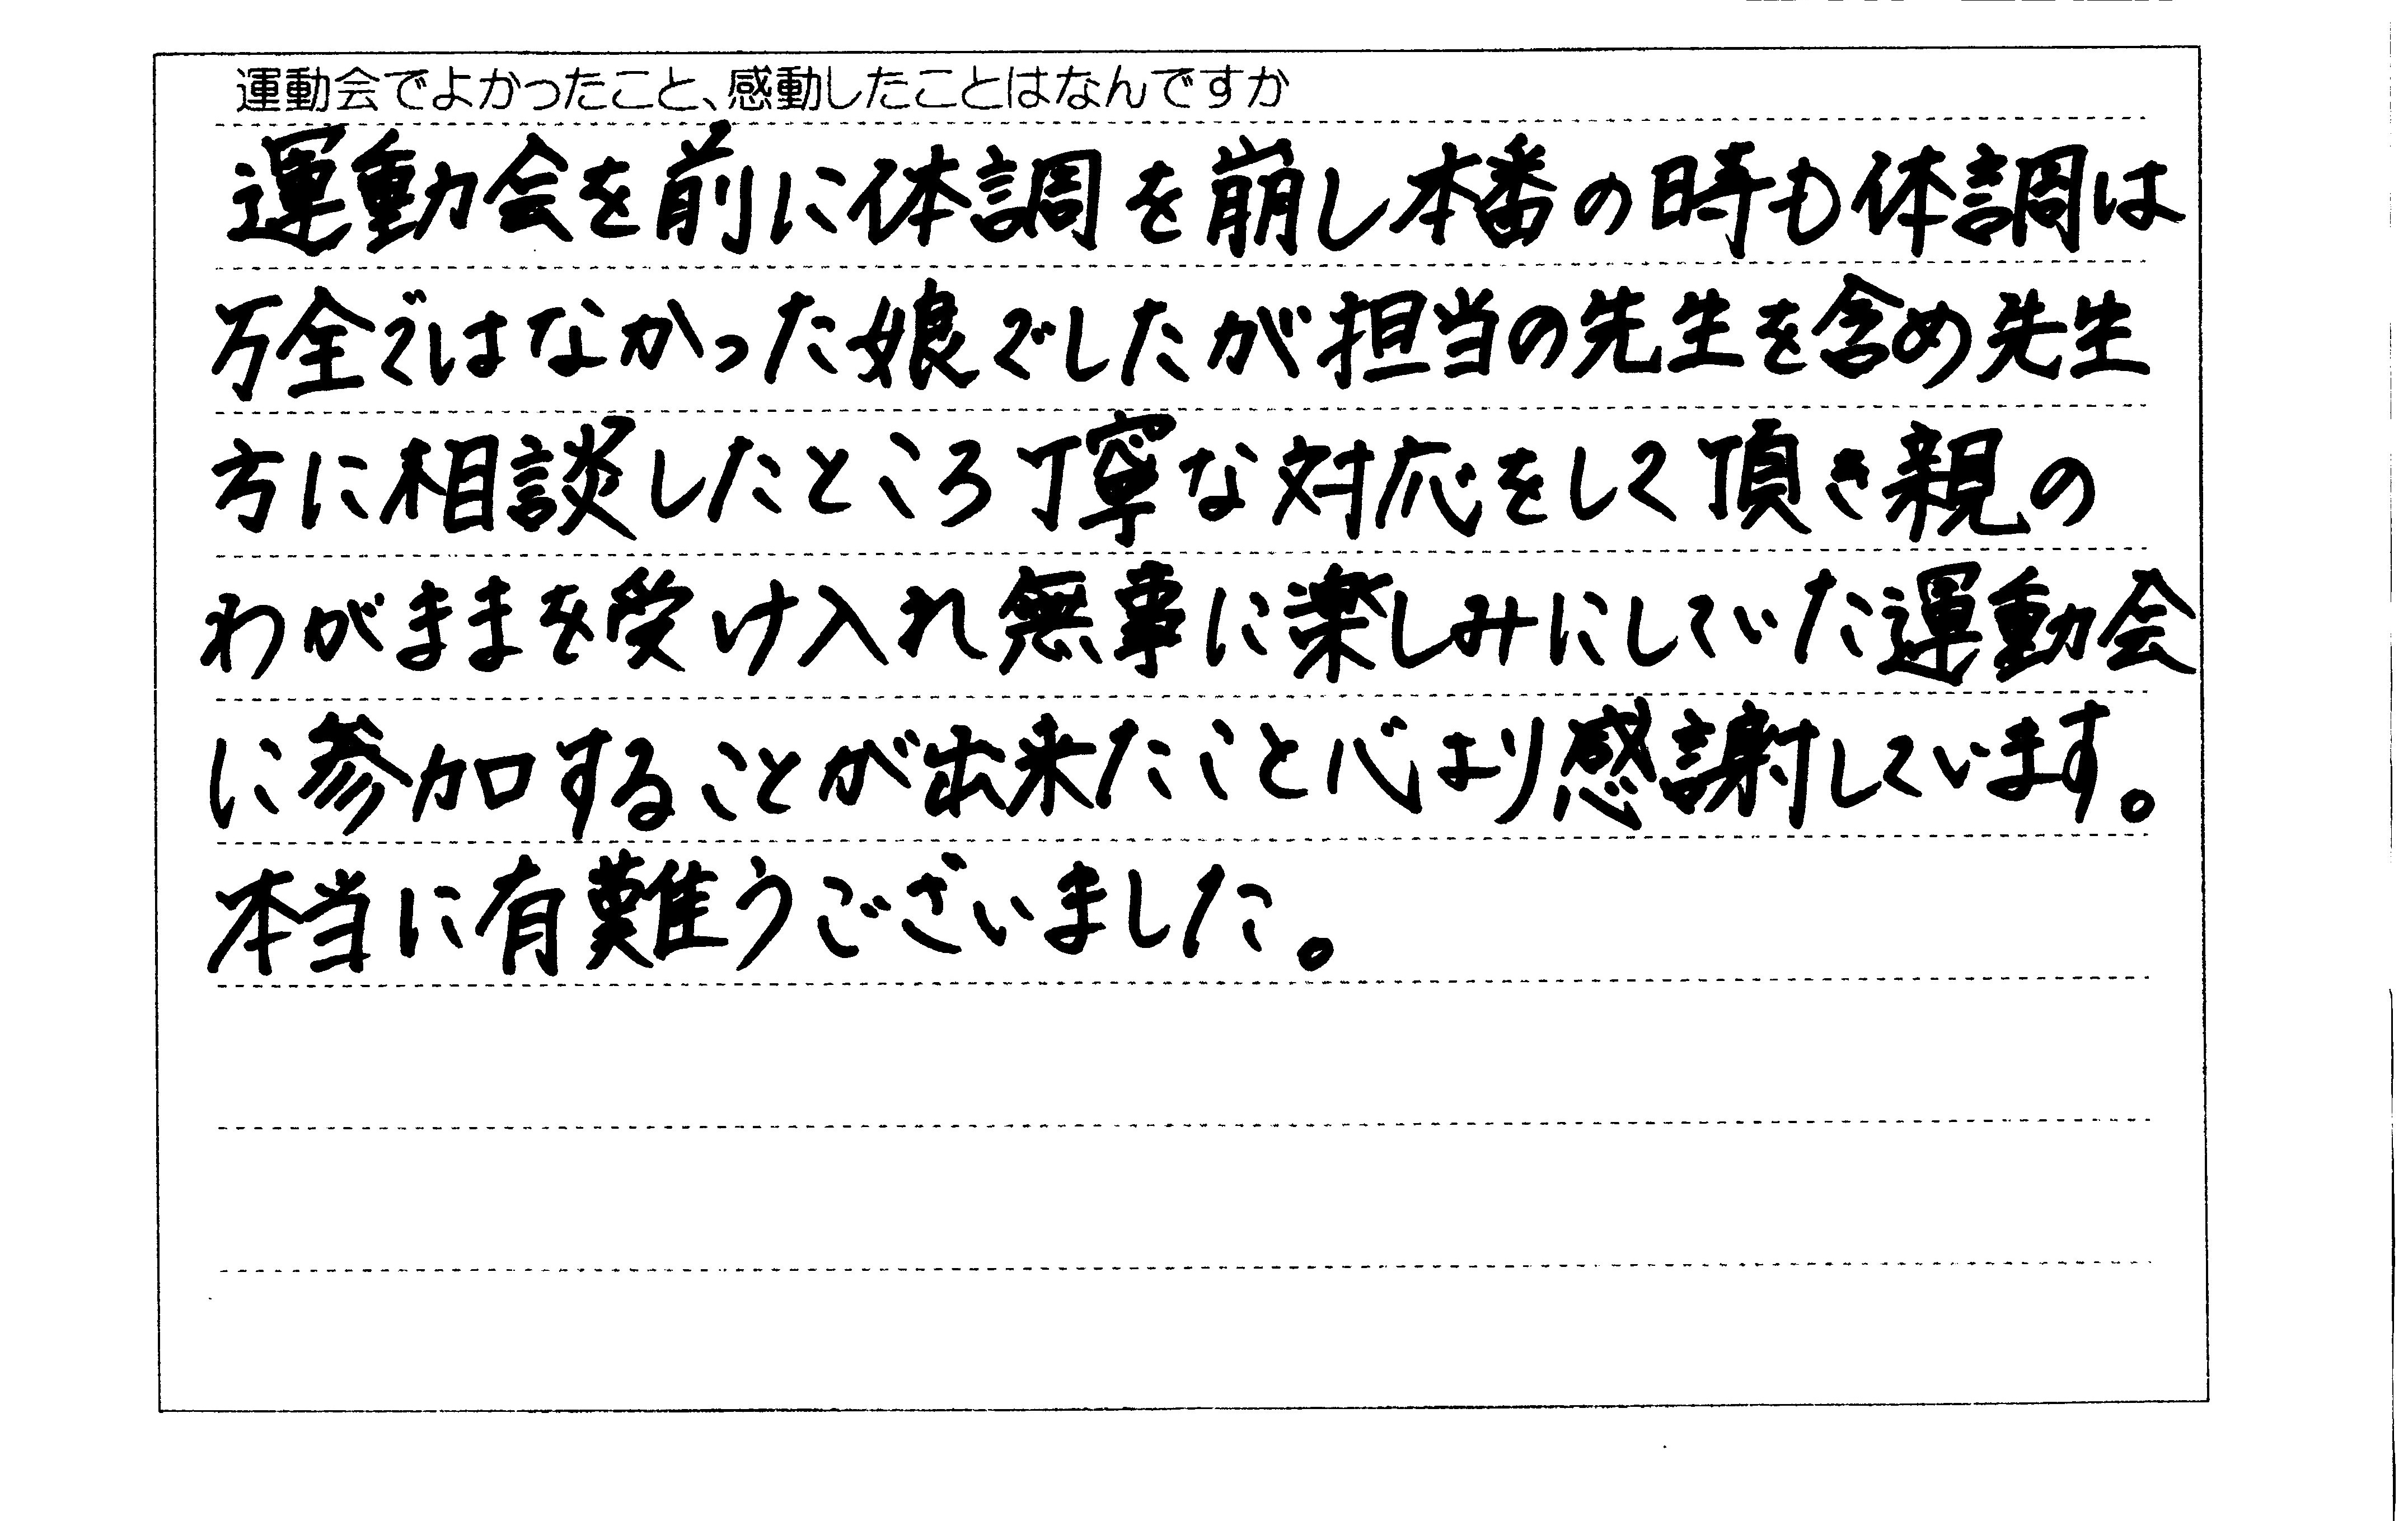 運動会でよかったこと、感動したことはなんですか
運動会を前に体調を崩し本番の時も体調は
万全ではなかった娘でしたが担当の先生を含め先生
方に相談したところ丁寧な対応をして頂き親の
わがままを受け入れ無事に楽しみにしていた運動会
に参加することが出来たこと心より感謝しています。
本当に有難うございました。